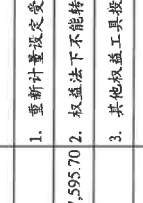 1. 重新计量设定受
,595.70 2. 权益法下不能转
3. 其他权益工具投